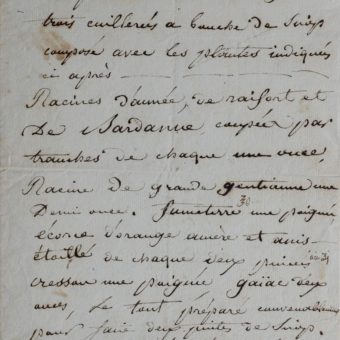 trois cuillerées à bouche de Sirop
composé avec les plantes indiquées
ci après
Racines d'aunée, de raifort et
De Bardanne, coupée par
tranches de chaque une once,
Racine de grande gentianne une
Demi once. fumeterre une poignée
écorce d'orange amère et anis
étoillé de chaque deux
cresson une poignée gaiac deux
onces, le tout préparé convenablement
pour faire deux pintes de Sirop.